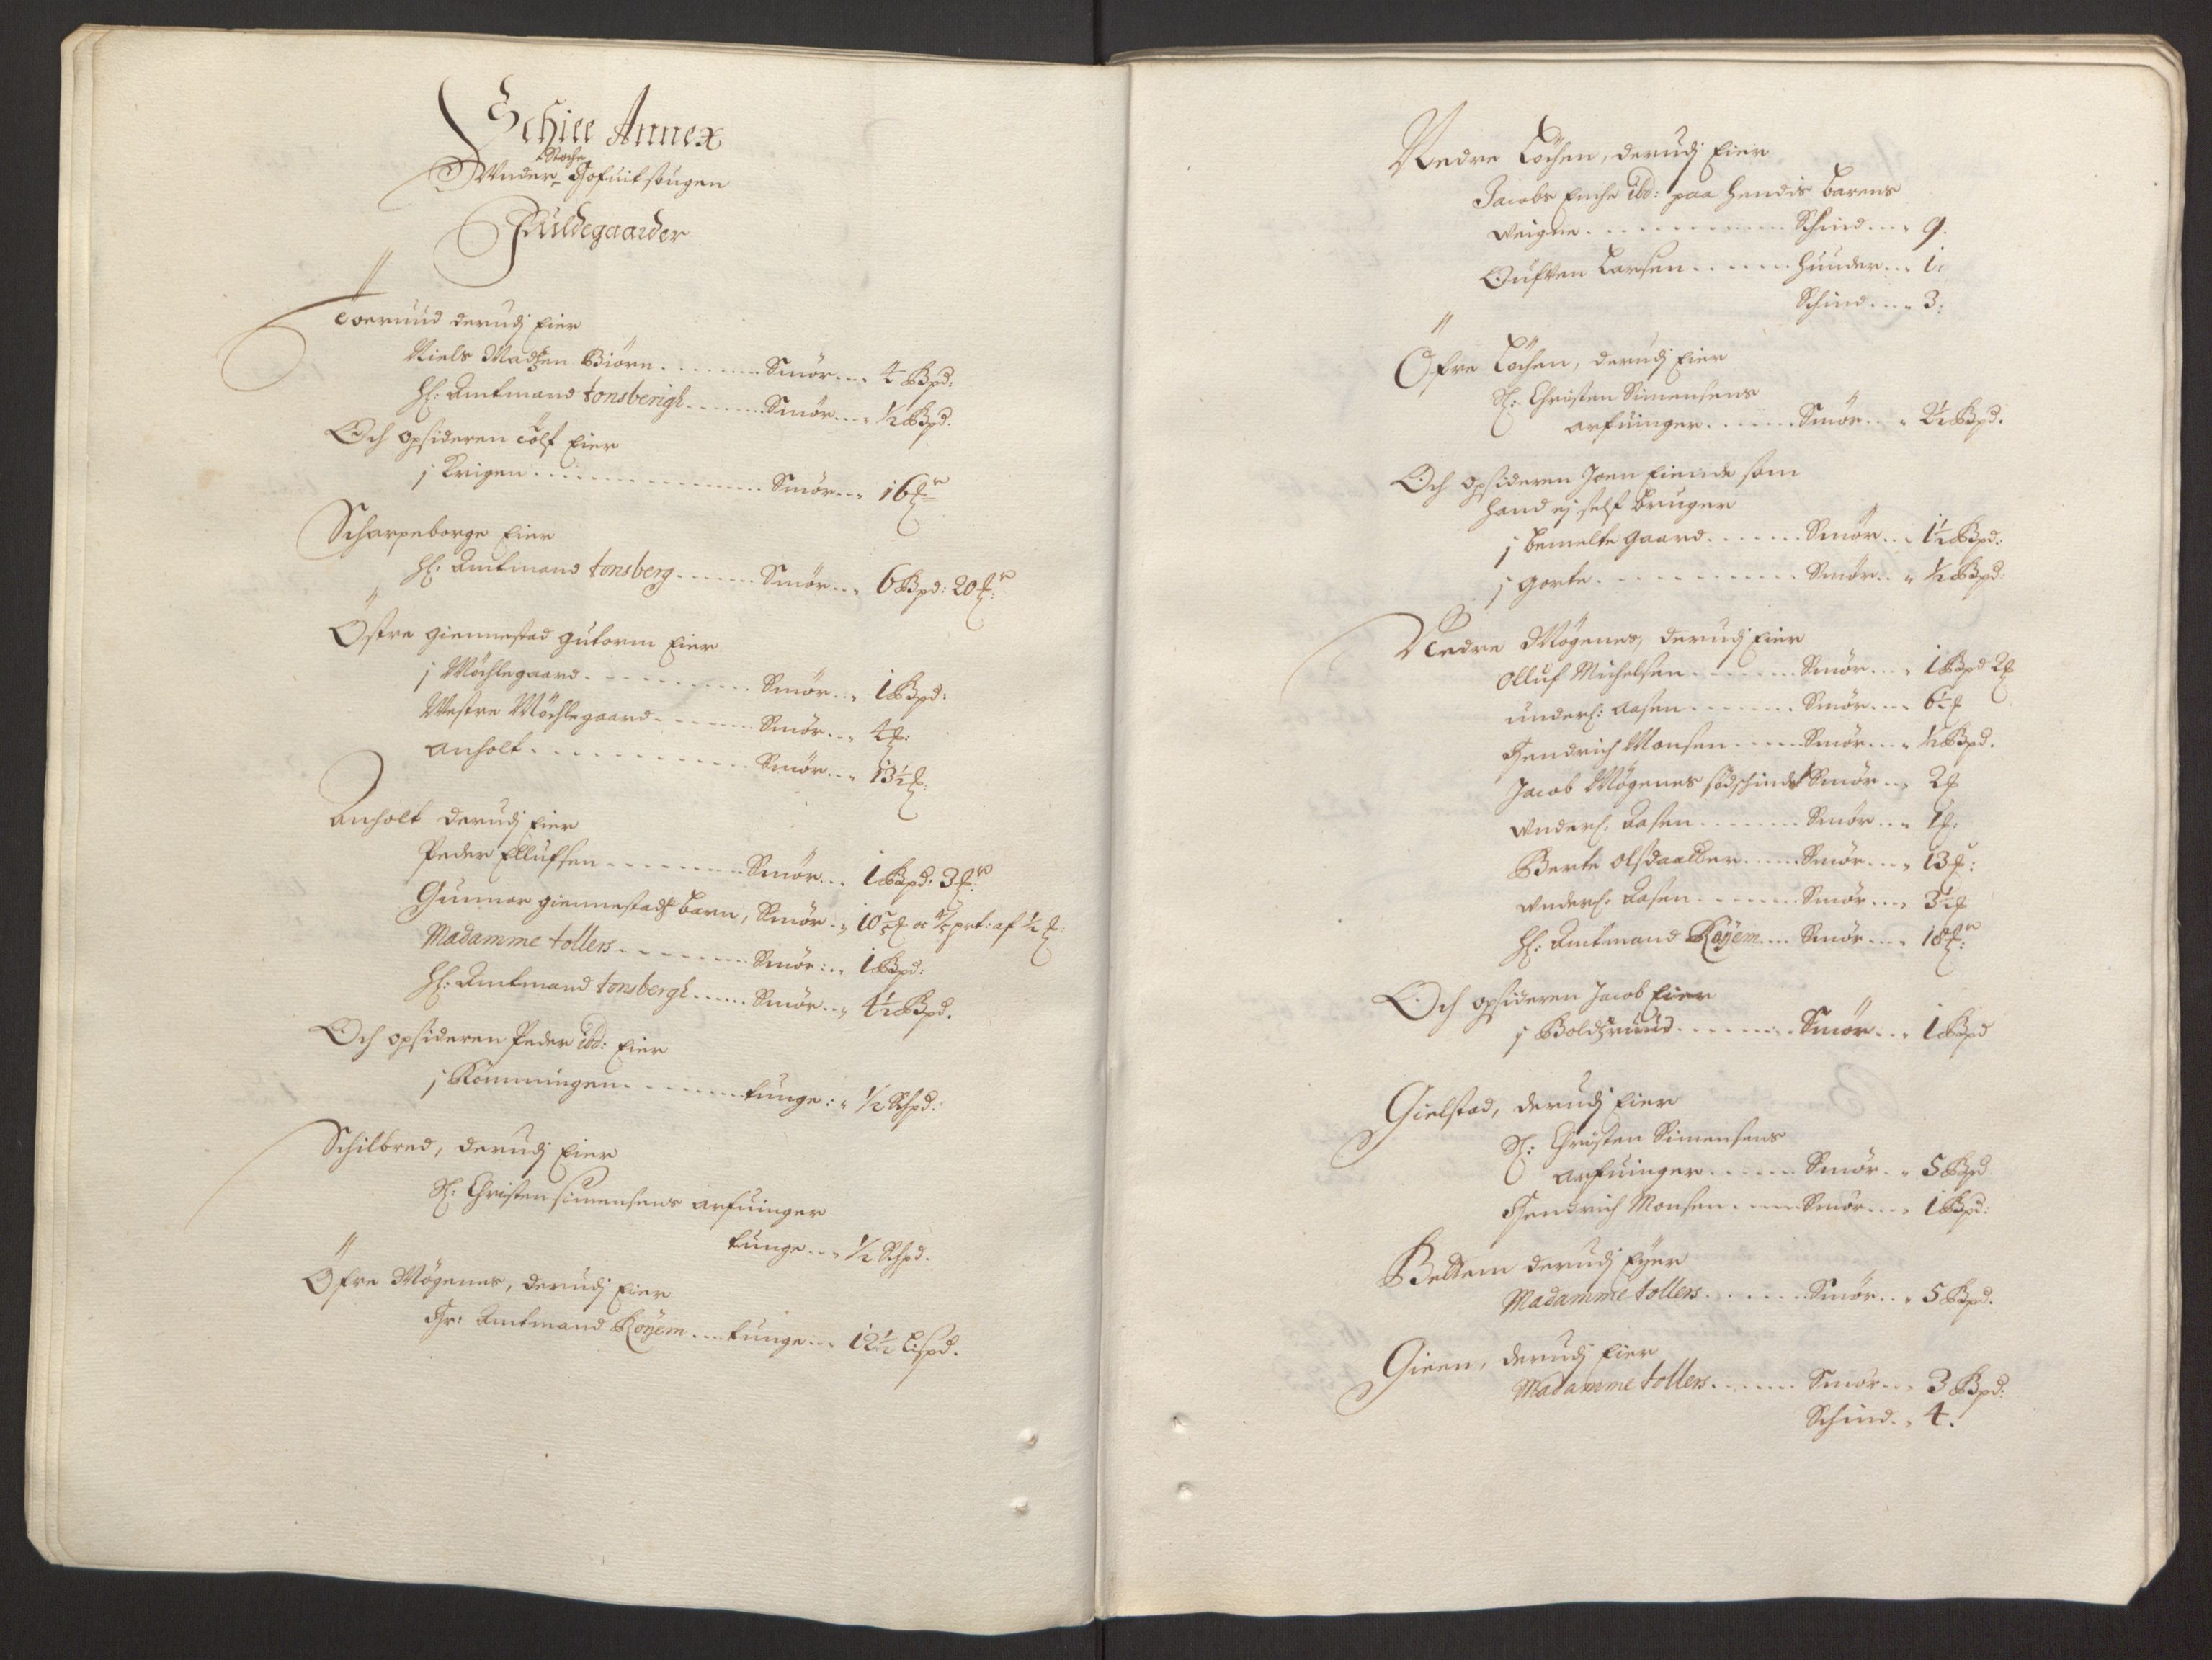 Schiee Annex
Stoche
Under Hofuit sougen
Fuldegaarder
Toerund derudj Eier
Niels Madtzen Biörn Smör 4 Bpd:
Hl: Amtmand tonsberigh Smör ½ Bpd.
Och opsideren Tölf Eier
j Krigen Smör 16
Scharpeborge Eier
Hl: Amtmand tonsberg Smör 6 Bpd: 20
Östre giennestad gutorm Eier
j Möchlegaard Smör 1 Bpd:
Westre Möchlegaard Smör 4
anholt Smör 13½
Anholt derudj Eier
Peder Ellufsen Smör 1 Bpd: 3
Gunnor giennestads barn, Smör 10 prt: af ½
Madamme tollers Smör 1 Bpd:
Hl: Amtmand tonsbergh Smör 4½ Bpd.
Och opsideren Peder ibd: Eier
j Römmingen tunge ½ Schpd.
Schilbred, derudj Eier
Sl: Christen Simensens arfuinger
tunge ½ Schpd.
Öfre Mögenes, derudj Eier
Hr: Amtmand Röyem tunge 12½ Lispd.
Nedre Löchen, derudj Eier
Jacobs Enche ibd: paa hendis barens
Weigne Schind 9.
Oufven Larsen Hunder 1
Schind 3:
Öfre Löchen, derudj Eier
Sl: Christen Simensens
arfuinger Smör 2½ Bpd.
Och opsideren Joen Eiende som
hand ej self bruger
j bemelte gaard Smör 1½ Bpd:
j gorte Smör ½ Bpd:
Nedre Mögenes, derudj Eier
Olluf Michelsen Smör 1 Bpd 2
underl: Aasen Smör 6½
Hendrich Monsen Smör ½ Bpd.
Jacob Mögenes södschinde Smör 2
underl: Aasen Smör 1
Berte olsdaatter Smör 13
underl: Aasen Smör 3½
Hl: Amtmand Röyem Smör 18
Och opsideren Jacob Eier
j Boldsrund Smör 1 Bpd
Gielstad, derudj Eier
Sl: Christen Simensens
arfuinger Smör 5 Bpd
Hendrich Monsen Smör 1 Bpd:
Bettem derudj Eyer
Madamme tollers Smör 5 Bpd.
Gieen, derudj Eier
Madamme tollers Smör 3 Bpd:
Schind 4.